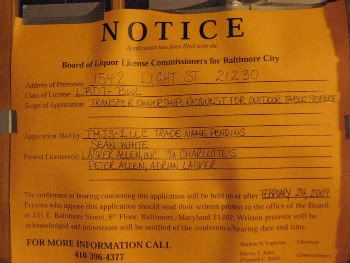 NOTICE
Application has been filed with the
Board of Liquor License Commissioners for Baltimore City
Address of Premises 1542 LIGHT ST 21230
Class of License LBD7- BWL
Scope of Application: TRANSFER OWNERSHIP, REQUEST FOR OUTDOOR TABLE SERVICE
Application filed by TMJS-1, LLC TRADE NAME PENDING
SEAN WHITE
Present Licensee(s) LASKER ALLEN, INC. T/A CHARLOTTE'S
PETER ALLEN, ADRIAN LASKER
The conference or hearing concerning this application will be held on or after FEBRUARY 24, 2009
Persons who oppose this application should send their written protest to the office of the Board
at 231 E. Baltimore Street, 6th Floor, Baltimore, Maryland 21202. Written protests will be
acknowledged and protestants will be notified of the conference/hearing date and time.
FOR MORE INFORMATION CALL
410-396-4377
Stephen W. Fogleman Chairman
Commissioner
Commissioner